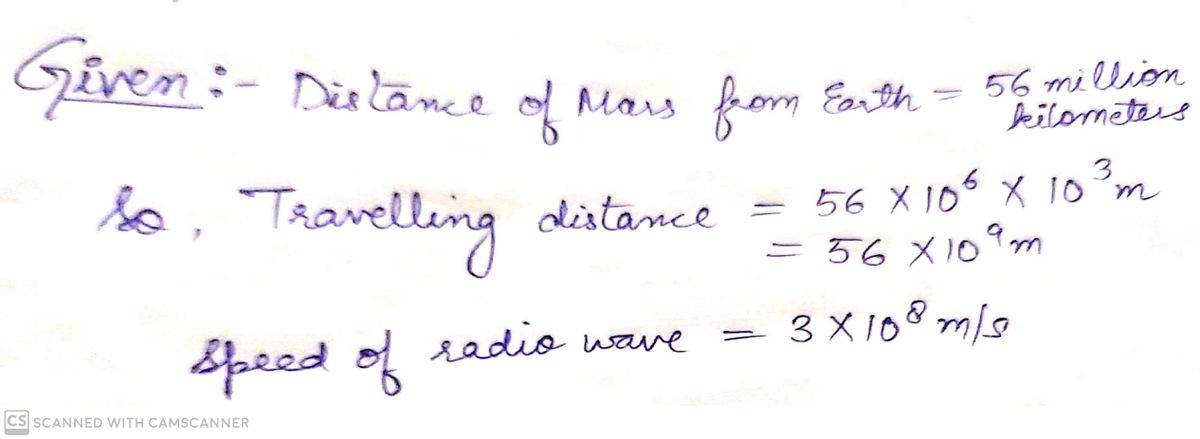 Given :- Distance of Mars from Earth = 56 million
kilometers
So, Travelling distance = 56 X 10⁶ X 10³ m
= 56 X 10⁹ m
Speed of radio wave = 3 X 10⁸ m/s
CS SCANNED WITH CAMSCANNER